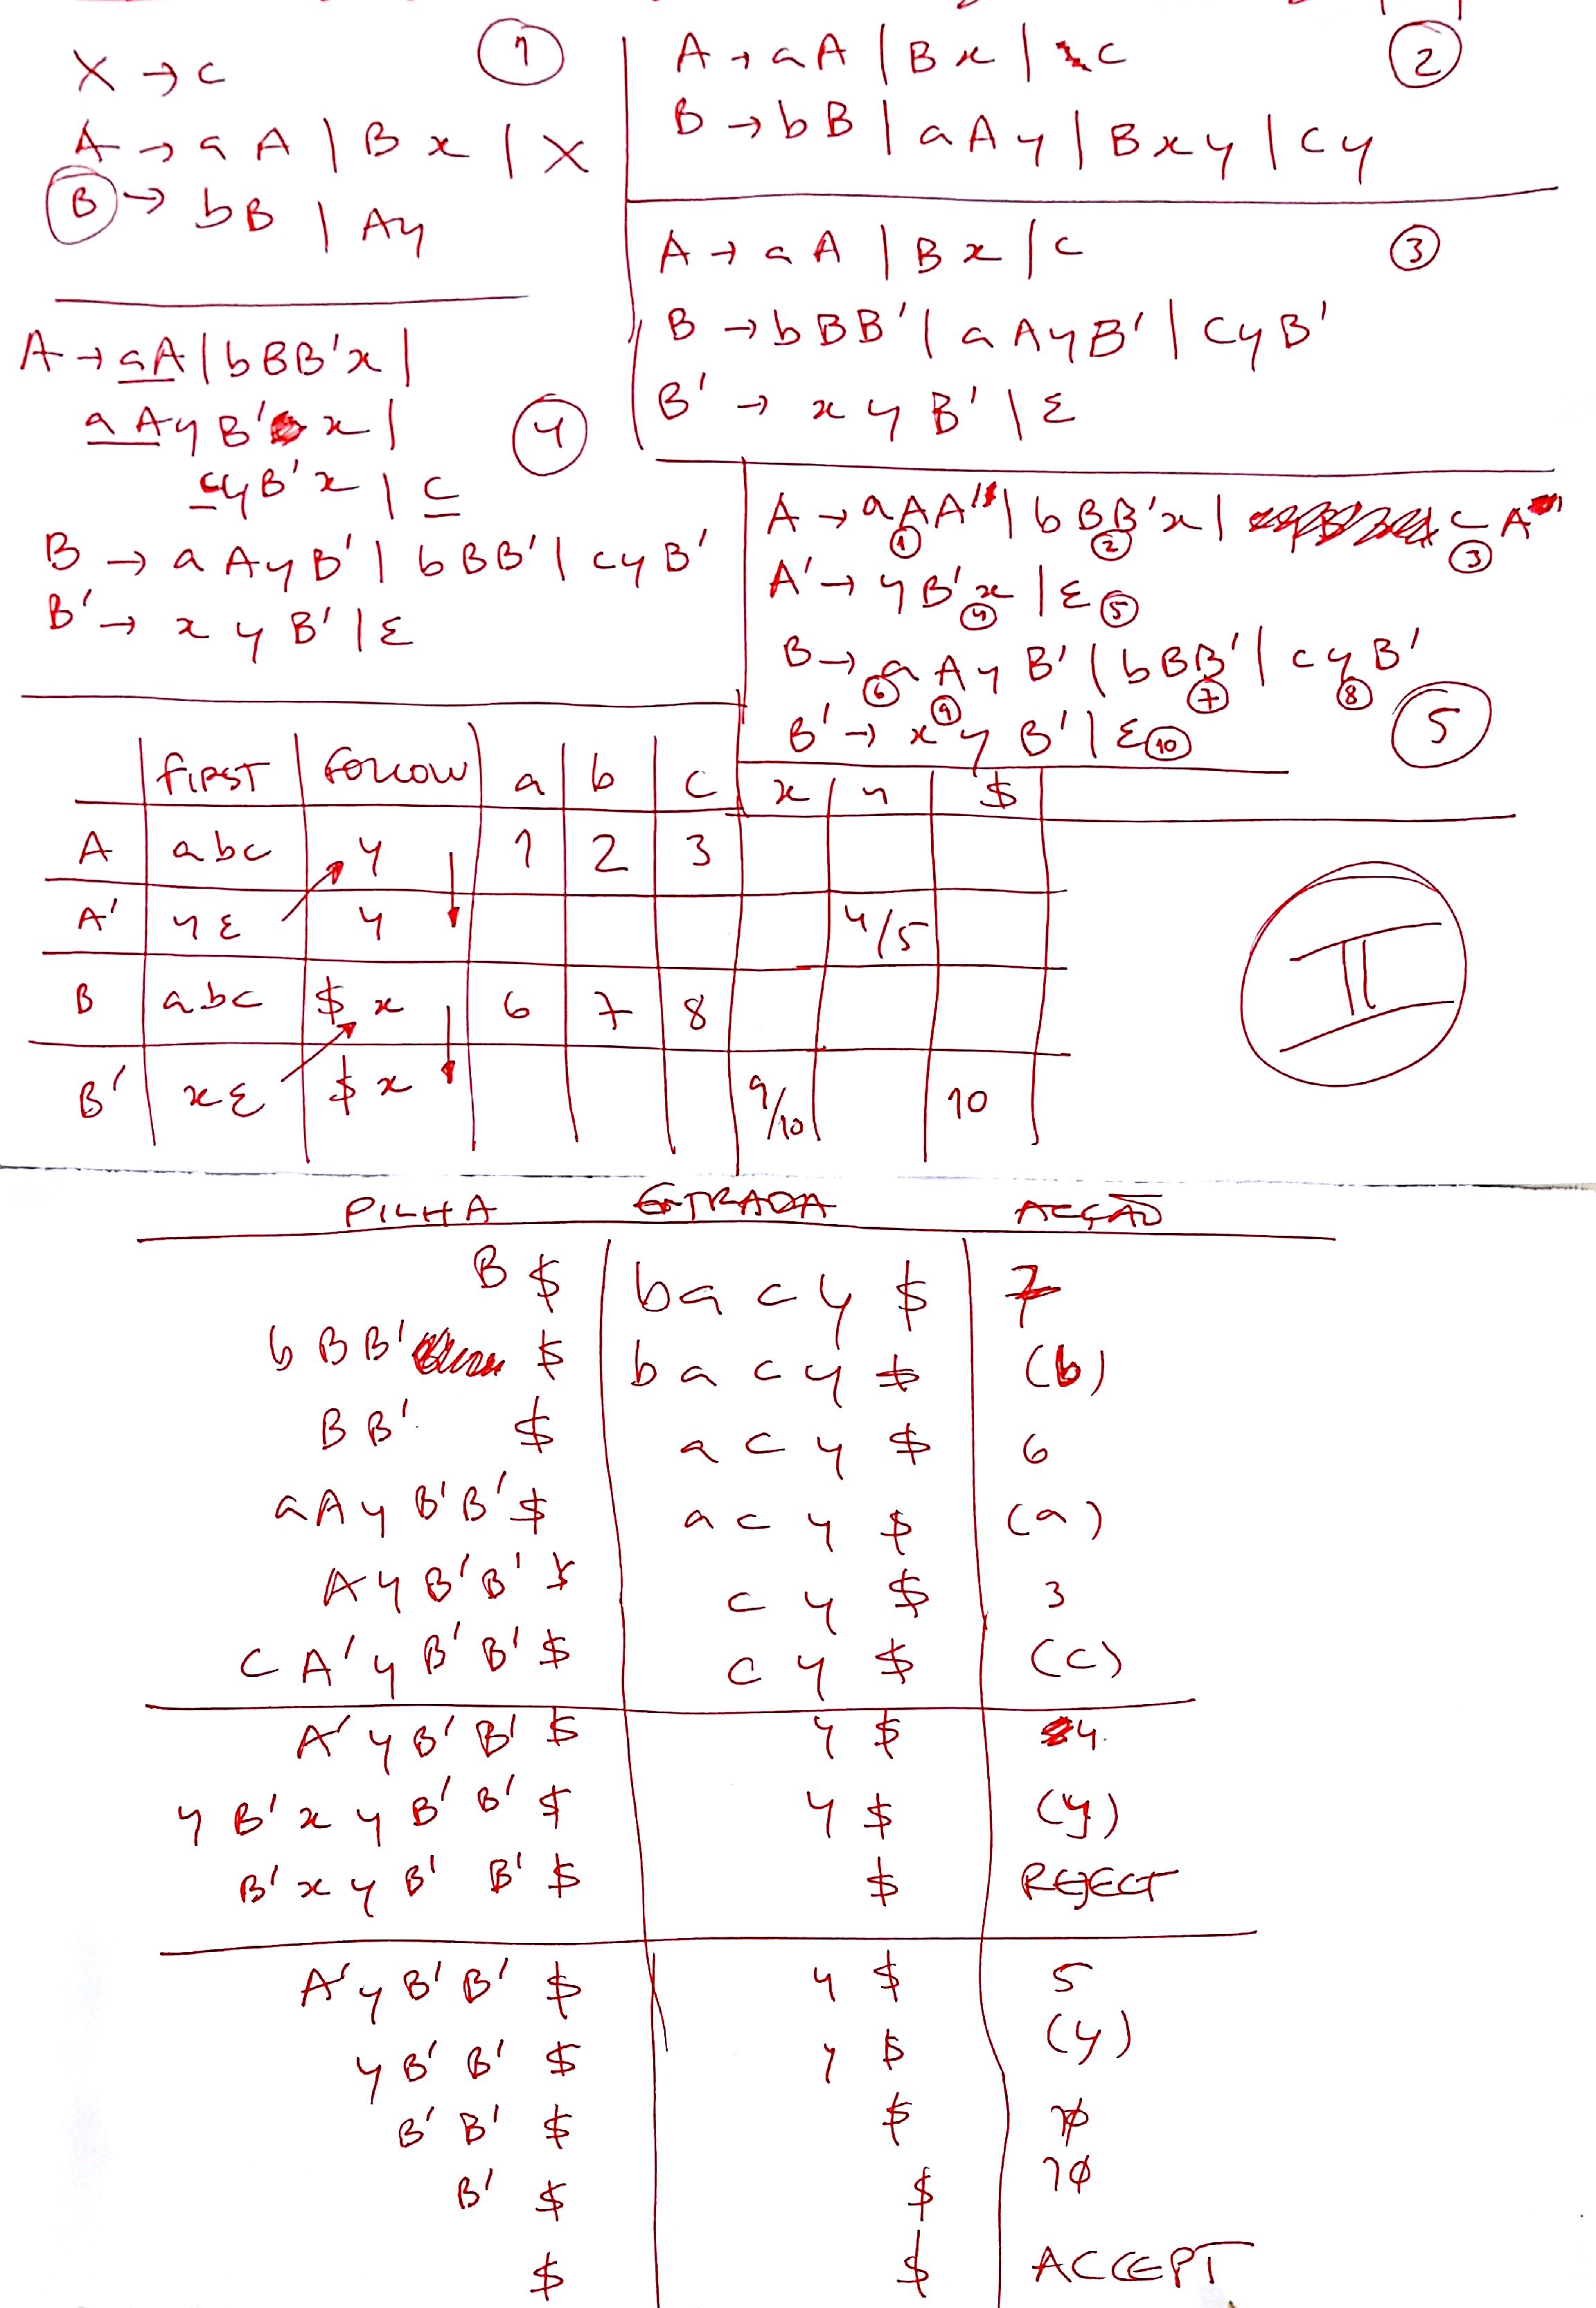 ①
X → c
A → aA | Bx | X
B → bB | Ay
②
A → aA | Bx | c
B → bB | aAy | Bxy | cy
③
A → aA | Bx | c
B → bBB' | aAyB' | cyB'
B' → xyB' | ε
④
A → aA | bBB'x |
aAyB'x |
cyB'x | c
B → aAyB' | bBB' | cyB'
B' → xyB' | ε
⑤
A → aAA' ① | bBB'x ② | cA' ③
A' → yB'x ④ | ε ⑤
B → aAyB' ⑥ | bBB' ⑦ | cyB' ⑧
B' → xyB' ⑨ | ε ⑩
FIRST FOLLOW a b c x y $
A abc y 1 2 3
A' yε y 4/5
B abc $ x 6 7 8
B' xε $ x 9/10 10
II
PILHA ENTRADA ACÇÃO
B $ bacy $ 7
bBB' $ bacy $ (b)
BB' $ acy $ 6
aAyB'B' $ acy $ (a)
AyB'B' $ cy $ 3
cA'yB'B' $ cy $ (c)
A'yB'B' $ y $ 4
yB'xyB'B' $ y $ (y)
B'xyB'B' $ $ REJECT
A'yB'B' $ y $ 5
yB'B' $ y $ (y)
B'B' $ $ 10
B' $ $ 10
$ $ ACCEPT